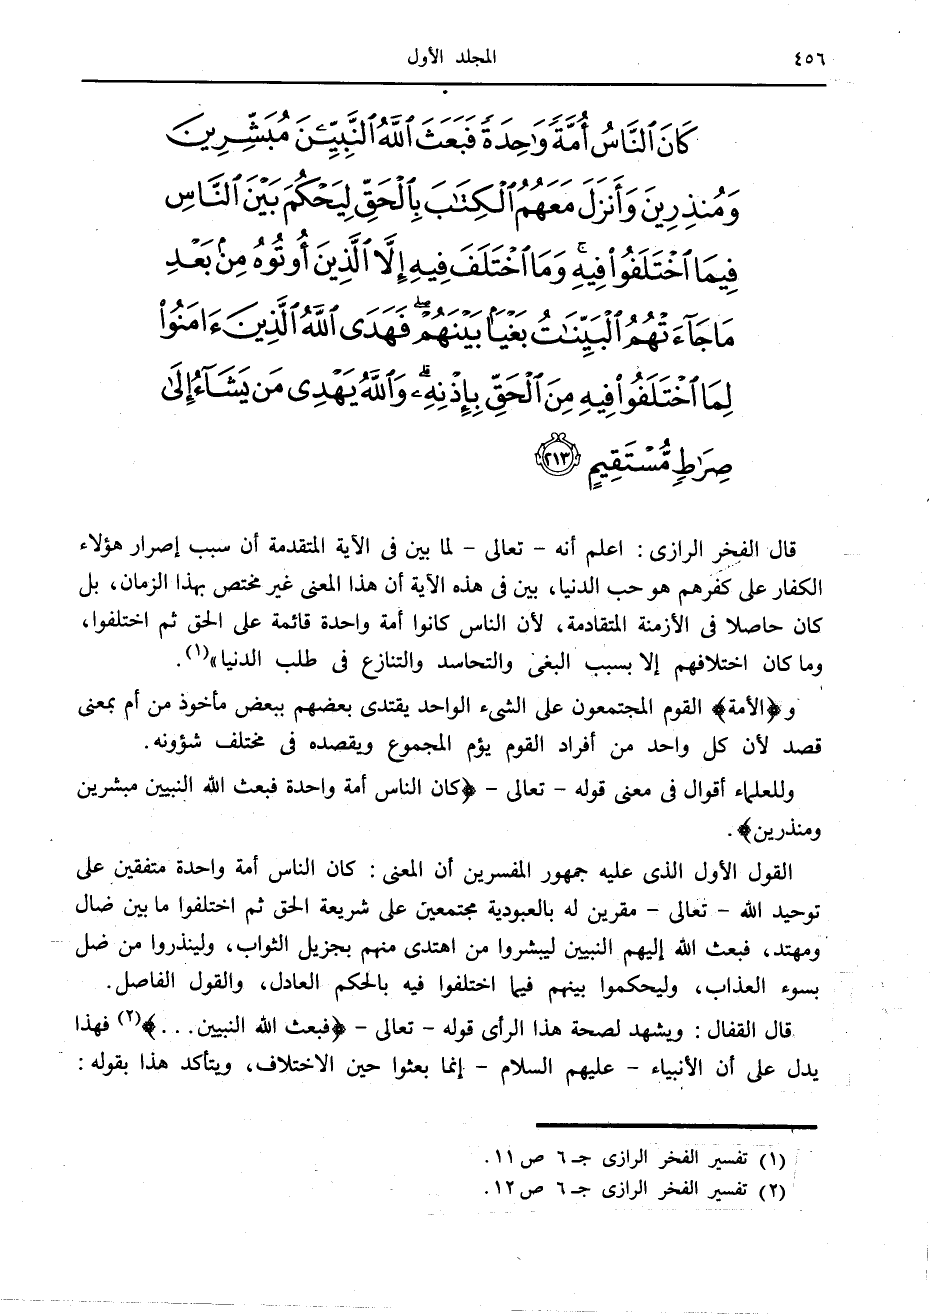 ٤٥٦
المجلد الأول
كَانَ ٱلنَّاسُ أُمَّةً وَٰحِدَةً فَبَعَثَ ٱللَّهُ ٱلنَّبِيِّـۧنَ مُبَشِّرِينَ
وَمُنذِرِينَ وَأَنزَلَ مَعَهُمُ ٱلْكِتَٰبَ بِٱلْحَقِّ لِيَحْكُمَ بَيْنَ ٱلنَّاسِ
فِيمَا ٱخْتَلَفُوا۟ فِيهِ ۚ وَمَا ٱخْتَلَفَ فِيهِ إِلَّا ٱلَّذِينَ أُوتُوهُ مِنۢ بَعْدِ
مَا جَآءَتْهُمُ ٱلْبَيِّنَٰتُ بَغْيًۢا بَيْنَهُمْ ۖ فَهَدَى ٱللَّهُ ٱلَّذِينَ ءَامَنُوا۟
لِمَا ٱخْتَلَفُوا۟ فِيهِ مِنَ ٱلْحَقِّ بِإِذْنِهِۦ ۗ وَٱللَّهُ يَهْدِى مَن يَشَآءُ إِلَىٰ
صِرَٰطٍ مُّسْتَقِيمٍ ٢١٣
قال الفخر الرازى : اعلم أنه - تعالى - لما بين فى الآية المتقدمة أن سبب إصرار هؤلاء
الكفار على كفرهم هو حب الدنيا، بين فى هذه الآية أن هذا المعنى غير مختص بهذا الزمان، بل
كان حاصلا فى الأزمنة المتقادمة، لأن الناس كانوا أمة واحدة قائمة على الحق ثم اختلفوا،
وما كان اختلافهم إلا بسبب البغى والتحاسد والتنازع فى طلب الدنيا»(١).
و﴿الأمة﴾ القوم المجتمعون على الشىء الواحد يقتدى بعضهم ببعض مأخوذ من أم بمعنى
قصد لأن كل واحد من أفراد القوم يؤم المجموع ويقصده فى مختلف شؤونه.
وللعلماء أقوال فى معنى قوله - تعالى - ﴿كان الناس أمة واحدة فبعث الله النبيين مبشرين
ومنذرين﴾.
القول الأول الذى عليه جمهور المفسرين أن المعنى : كان الناس أمة واحدة متفقين على
توحيد الله - تعالى - مقرين له بالعبودية مجتمعين على شريعة الحق ثم اختلفوا ما بين ضال
ومهتد، فبعث الله إليهم النبيين ليبشروا من اهتدى منهم بجزيل الثواب، ولينذروا من ضل
بسوء العذاب، وليحكموا بينهم فيما اختلفوا فيه بالحكم العادل، والقول الفاصل.
قال القفال : ويشهد لصحة هذا الرأى قوله - تعالى - ﴿فبعث الله النبيين...﴾(٢) فهذا
يدل على أن الأنبياء - عليهم السلام - إنما بعثوا حين الاختلاف، ويتأكد هذا بقوله :
(١) تفسير الفخر الرازى جـ ٦ ص ١١.
(٢) تفسير الفخر الرازى جـ ٦ ص ١٢.